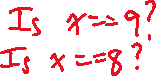 Is x==9?
Is x==8?